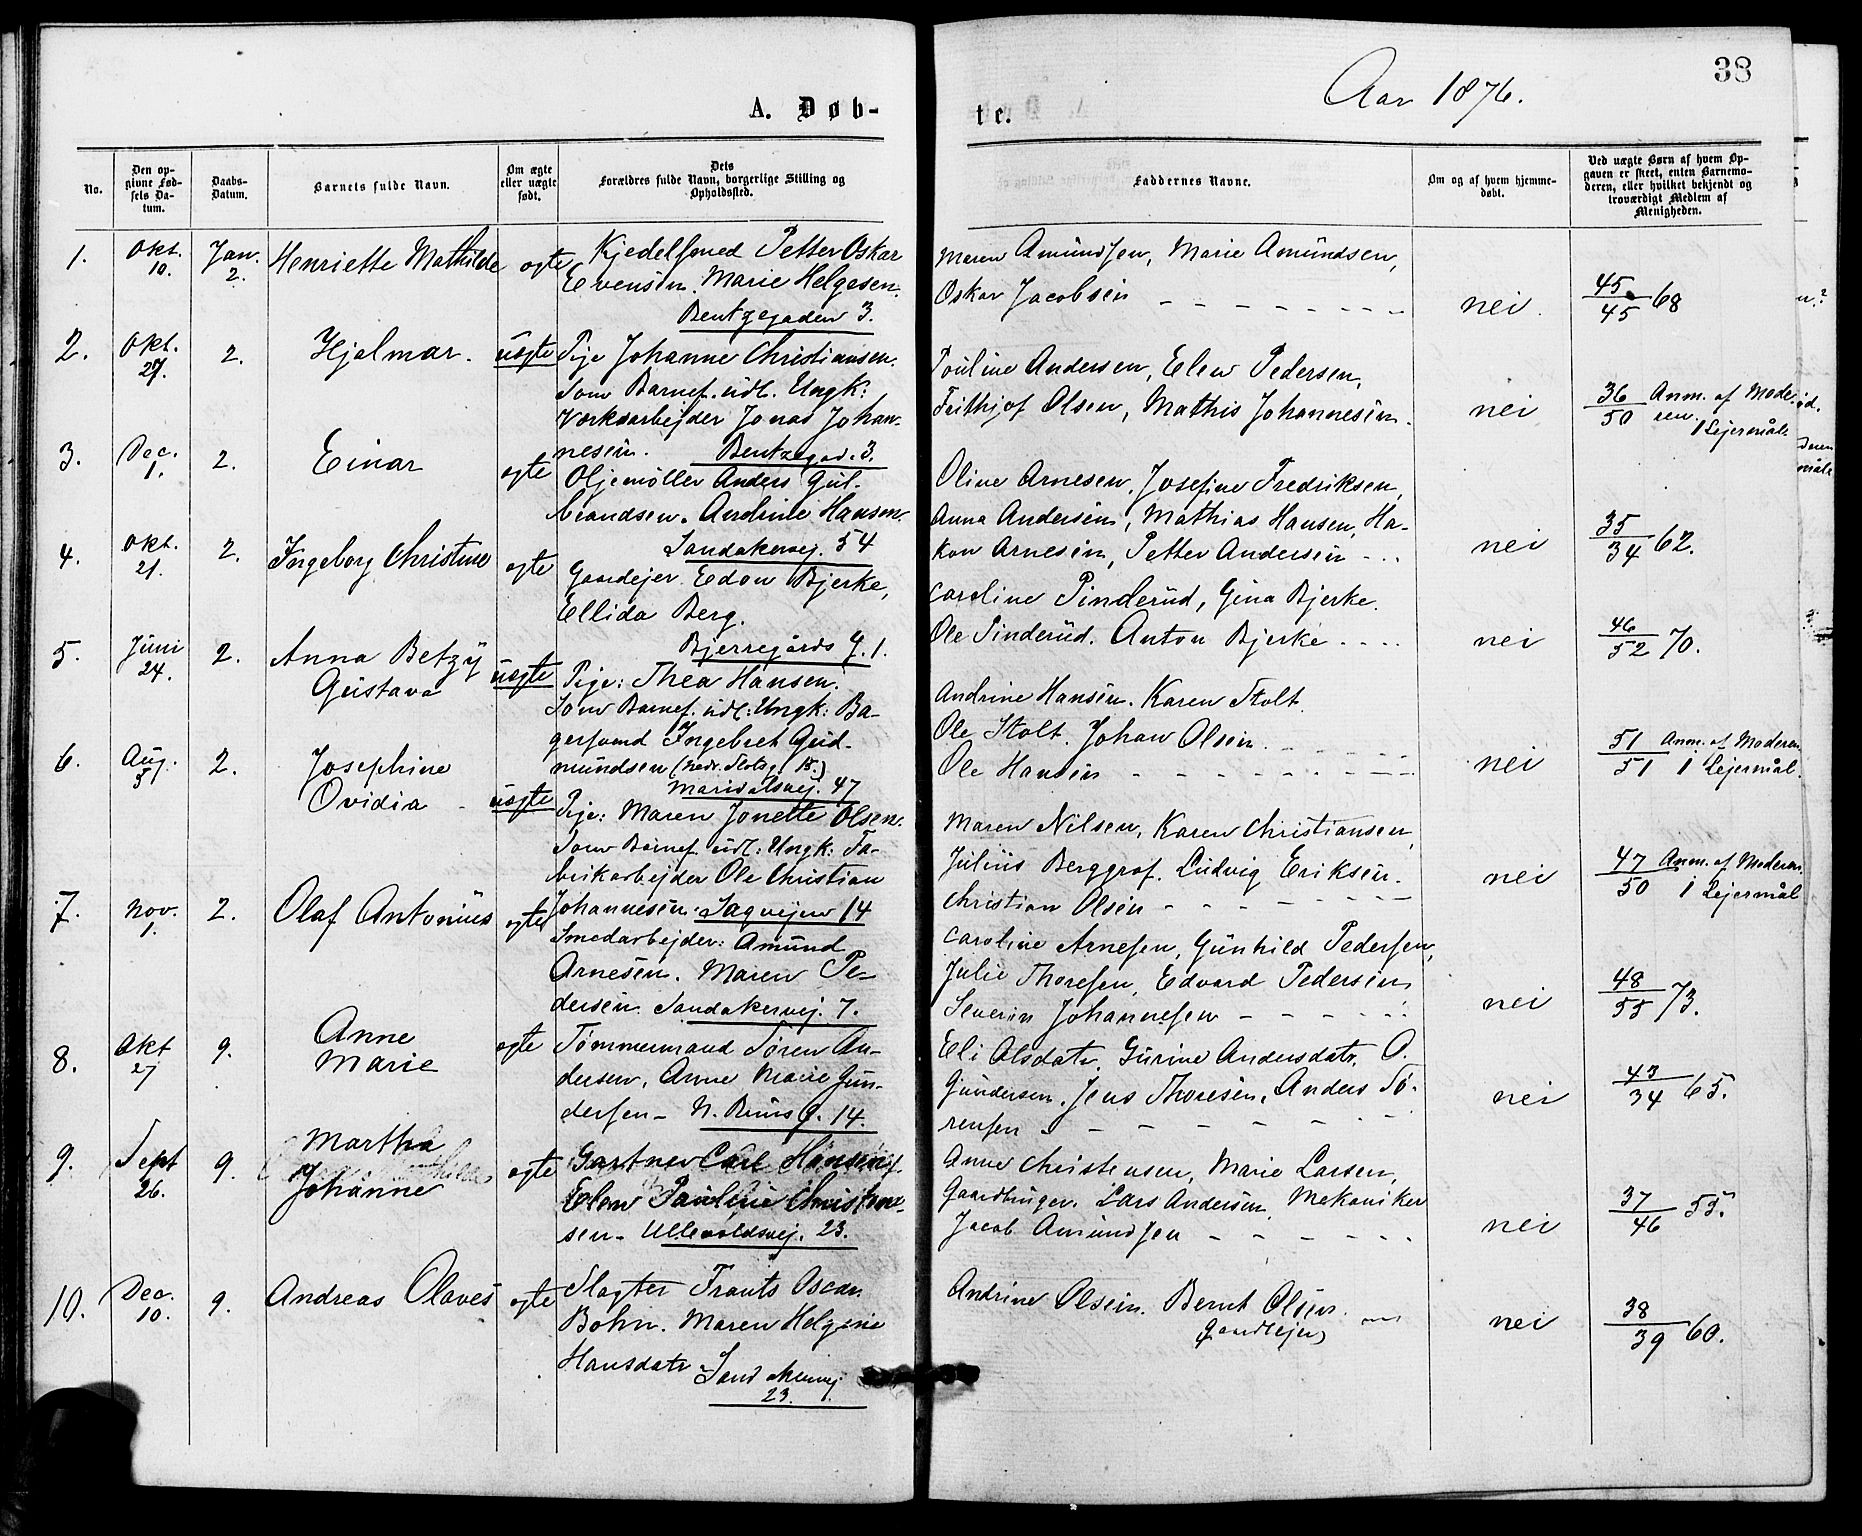 A. Døb-
te.
Aar 1876.
38
No.
Den op-
givne Fød-
sels Da-
tum.
Daabs-
Datum.
Barnets fulde Navn.
Om ægte
eller uægte
født.
Dets
Forældres fulde Navn, borgerlige Stilling og
Opholdssted.
Faddernes Navne.
Om og af hvem hjemme-
døbt.
Ved uægte Børn af hvem Op-
gaven er skeet, enten Barnemo-
deren, eller hvilket bekjendt og
troværdigt Medlem af
Menigheden.
1.
Okt.
10.
Jan.
2.
Henriette Mathilde
ægte
Kjedelsmed Petter Oskar
Evensen. Marie Helgesen.
Bentzegaden 3.
Maren Amundsen, Marie Amundsen,
Oskar Jacobsen
nei.
45
45 68
2.
Okt.
27.
2.
Hjalmar.
uægte
Pige Johanne Christiansen.
Som Barnef. udl. Ungk:
Værksarbejder Jonas Johan-
nesen. Bentzegad. 3.
Pouline Andersen, Elen Pedersen,
Frithjof Olsen, Mathis Johannesen.
nei
36
50
Anm. af Mode-
ren.
1 Lejermål.
3.
Dec.
1.
2.
Einar
ægte
Oljemøller Anders Gul-
brandsen. Andrine Hansen.
Sandakervej. 54
Oline Arnesen, Josefine Fredriksen,
Anna Andersen, Mathias Hansen, Ha-
kon Arnesen, Petter Andersen
nei
35
34 62.
4.
Okt.
21.
2.
Ingeborg Christine
ægte
Gaardejer. Edon Bjerke,
Ellida Berg.
Bjerregårds g. 1.
Caroline Pinderud, Gina Bjerke.
Ole Pinderud. Anton Bjerke
nei
46
52 70.
5.
Juni
24.
2.
Anna Betzy
Gustava
uægte
Pige: Thea Hansen.
Som Barnef. udl: Ungk: Ba-
gersvend Ingebret Gud-
mundsen (Nedr. Slotsg. 15.)
Maridalsvej. 47
Andrine Hansen. Karen Stolt.
Ole Stolt. Johan Olsen.
Ole Hansen
nei
51
51
Anm. af Moderen,
1 Lejermål.
6.
Aug.
5.
2.
Josephine
Ovidia
uægte
Pige: Maren Jonette Olsen.
Som Barnef. udl: Ungk: Fa-
brikarbejder Ole Christian
Johannesen. Sagvejen 14
Maren Nilsen, Karen Christiansen,
Julius Berggraf. Ludvig Eriksen.
Christian Olsen
nei
47
50
Anm. af Moderen
1 Lejermål
7.
Nov.
1.
2.
Olaf Antonius
ægte
Smedarbejder: Amund
Arnesen. Maren Pe-
dersen. Sandakervej. 7.
Caroline Arnesen, Gunhild Pedersen,
Julie Thoresen, Edvard Pedersen,
Severin Johannesen
nei
48
55 73.
8.
Okt
27
9.
Anne
Marie
ægte
Tømmermand Søren An-
dersen, Anne Marie Gun-
dersen. N. Bruns g. 14.
Eli Olsdatr. Gurine Andersdatr. O.
Gundersen. Jens Thoresen. Anders Sø-
rensen
nei
43
34 65.
9.
Sept
26.
9.
Martha
Johanne
ægte
Gartner Carl Hansen.
Elen Pauline Christen-
sen. Ullevoldsvej. 23.
Anne Christensen, Marie Larsen,
Lars Andersen, Mekaniker
Jacob Amundsen
nei
37
46 55.
10.
Dec.
10.
9.
Andreas Olaves
ægte
Slagter Frants Oscar
Bohn. Maren Helgine
Hansdatr. Sandakervej
23.
Andrine Olsen. Bernt Olsen
Gaardejer
nei
38
39 60.